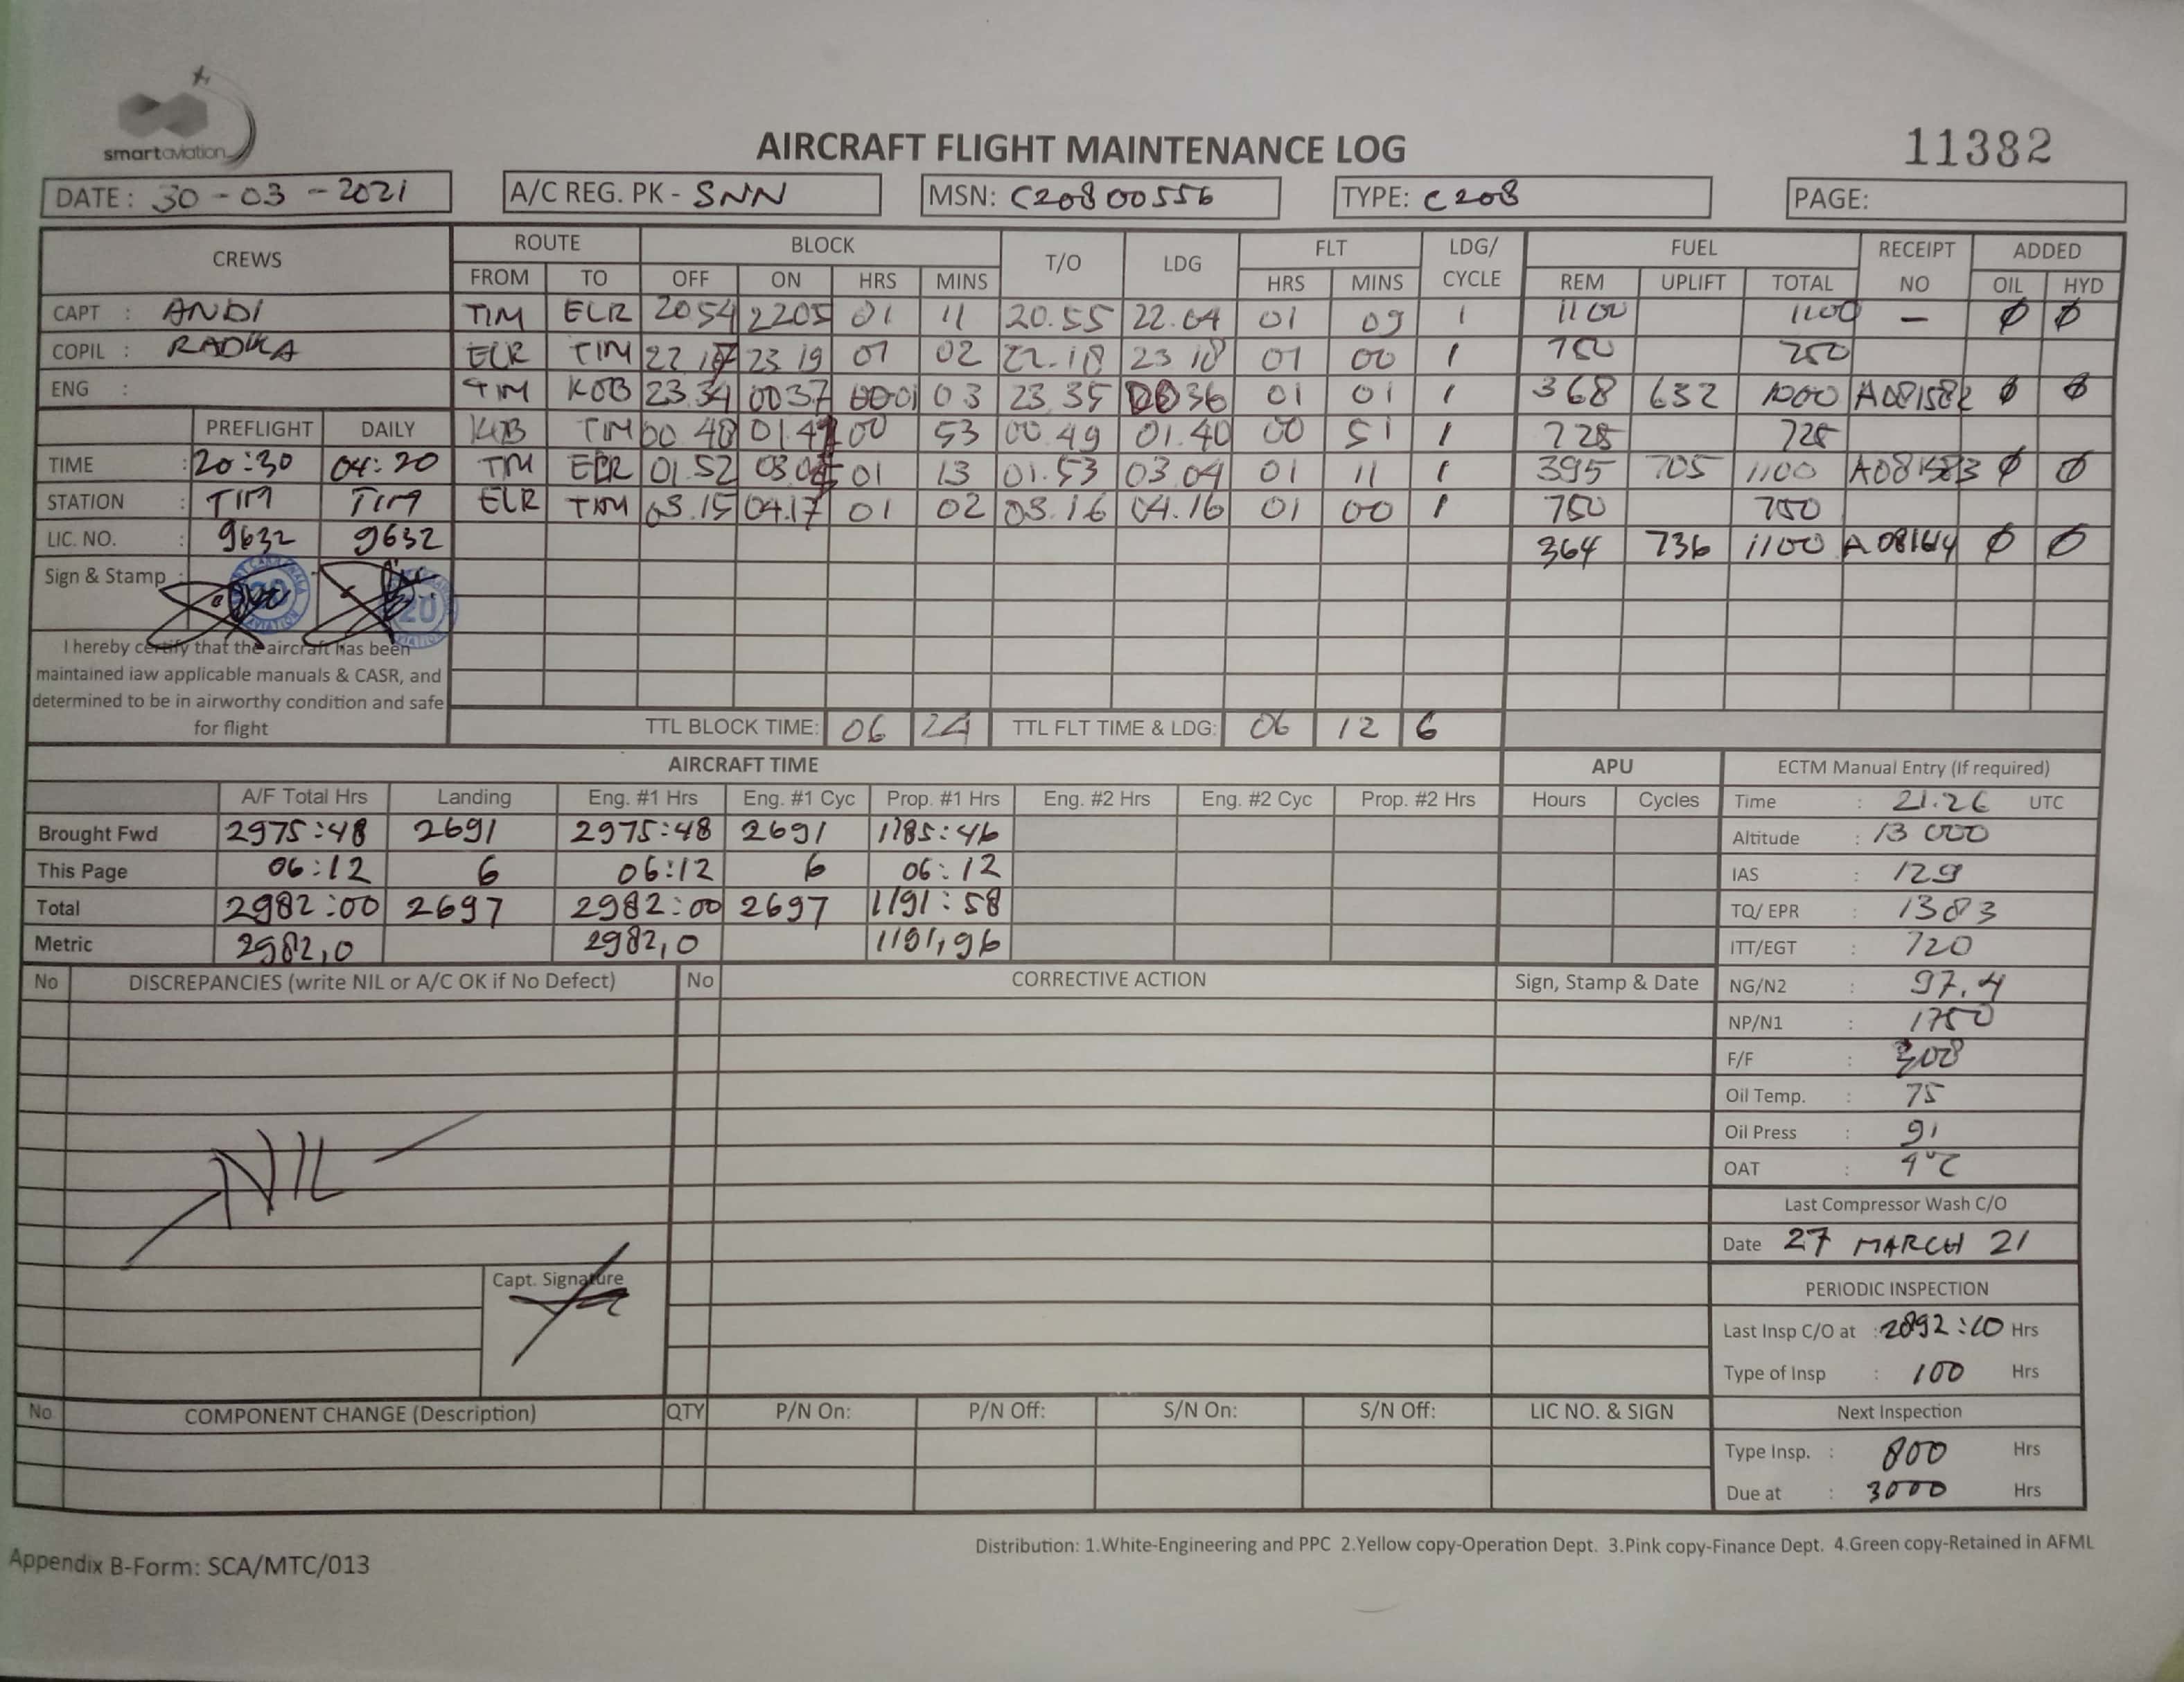 smartaviation
AIRCRAFT FLIGHT MAINTENANCE LOG
11382
DATE : 30 - 03 - 2021
A/C REG. PK - SNN
MSN: C20800556
TYPE: C208
PAGE:
CREWS ROUTE BLOCK T/O LDG FLT LDG/ CYCLE FUEL RECEIPT NO ADDED
FROM TO OFF ON HRS MINS HRS MINS REM UPLIFT TOTAL OIL HYD
CAPT : ANDI TIM ELR 2054 2205 01 11 20.55 22.04 01 09 1 1100 1100 – Ø Ø
COPIL : ELR TIM 22 17 23 19 01 02 22.18 23 18 01 00 1 750
ENG : TIM KOB 23.34 0037 03 23.35 0036 01 01 1 368 632 1000 A081582 Ø Ø
PREFLIGHT DAILY KOB TIM 00.48 00 53 00.49 01.40 00 51 1 725 725
TIME : 20:30 04:20 TIM ELR 01.52 01 13 01.53 03.04 01 11 1 395 705 1100 A081583 Ø Ø
STATION : TIM TIM ELR TIM 03.15 04.17 01 02 03.16 04.16 01 00 1 750 750
LIC. NO. : 9632 9632 364 736 1100 Ø Ø
Sign & Stamp :
I hereby certify that the aircraft has been
maintained iaw applicable manuals & CASR, and
determined to be in airworthy condition and safe
for flight
TTL BLOCK TIME: 06 24 TTL FLT TIME & LDG: 06 12 6
AIRCRAFT TIME APU ECTM Manual Entry (If required)
A/F Total Hrs Landing Eng. #1 Hrs Eng. #1 Cyc Prop. #1 Hrs Eng. #2 Hrs Eng. #2 Cyc Prop. #2 Hrs Hours Cycles Time : 21.26 UTC
Brought Fwd 2975:48 2691 2975:48 2691 1185:46 Altitude : 13 000
This Page 06:12 6 06:12 6 06:12 IAS : 129
Total 2982:00 2697 2982:00 2697 1191:58 TQ/ EPR : 1383
Metric 2982,0 2982,0 1191,96 ITT/EGT : 720
No DISCREPANCIES (write NIL or A/C OK if No Defect) No CORRECTIVE ACTION Sign, Stamp & Date NG/N2 : 97.4
NP/N1 : 1750
F/F : 308
Oil Temp. : 75
Oil Press : 91
OAT :
NIL
Last Compressor Wash C/O
Date 27 MARCH 21
Capt. Signature
PERIODIC INSPECTION
Last Insp C/O at : 2892:10 Hrs
Type of Insp : 100 Hrs
No COMPONENT CHANGE (Description) QTY P/N On: P/N Off: S/N On: S/N Off: LIC NO. & SIGN Next Inspection
Type Insp. : 800 Hrs
Due at : 3000 Hrs
Distribution: 1.White-Engineering and PPC 2.Yellow copy-Operation Dept. 3.Pink copy-Finance Dept. 4.Green copy-Retained in AFML
Appendix B-Form: SCA/MTC/013